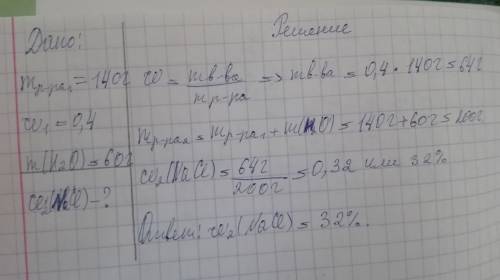 Дано:
mр-ра₁ = 140г
w₁ = 0,4
m(H₂O) = 60г
w₂(NaCl) - ?
Решение
w = mв-ва / mр-ра => mв-ва = 0,4 · 140г = 64г
mр-ра₂ = mр-ра₁ + m(H₂O) = 140г + 60г = 200г
w₂(NaCl) = 64г / 200г = 0,32 или 32%
Ответ: w₂(NaCl) = 32%.